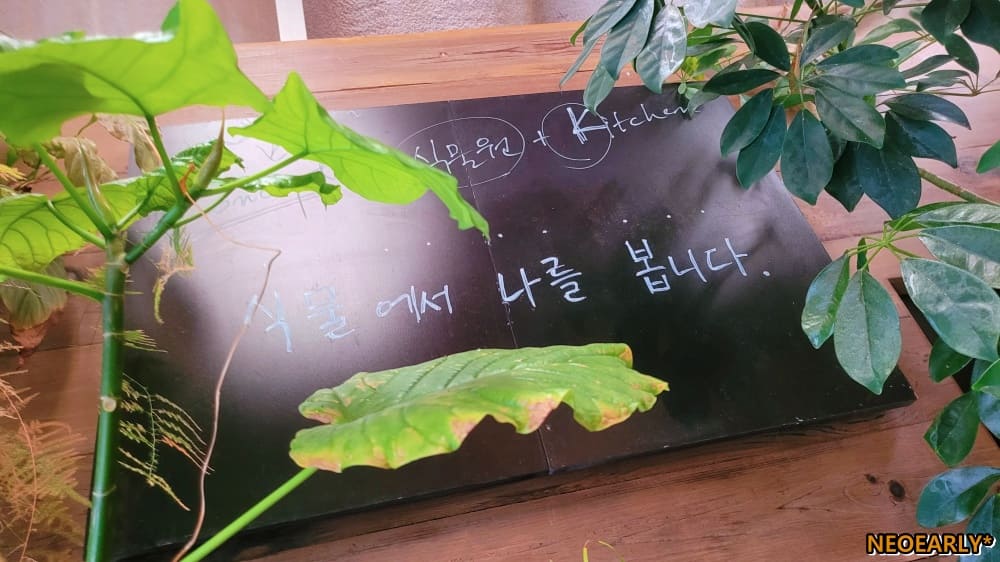 식물원 + Kitchen
식물에서 나를 봅니다.
NEOEARLY*